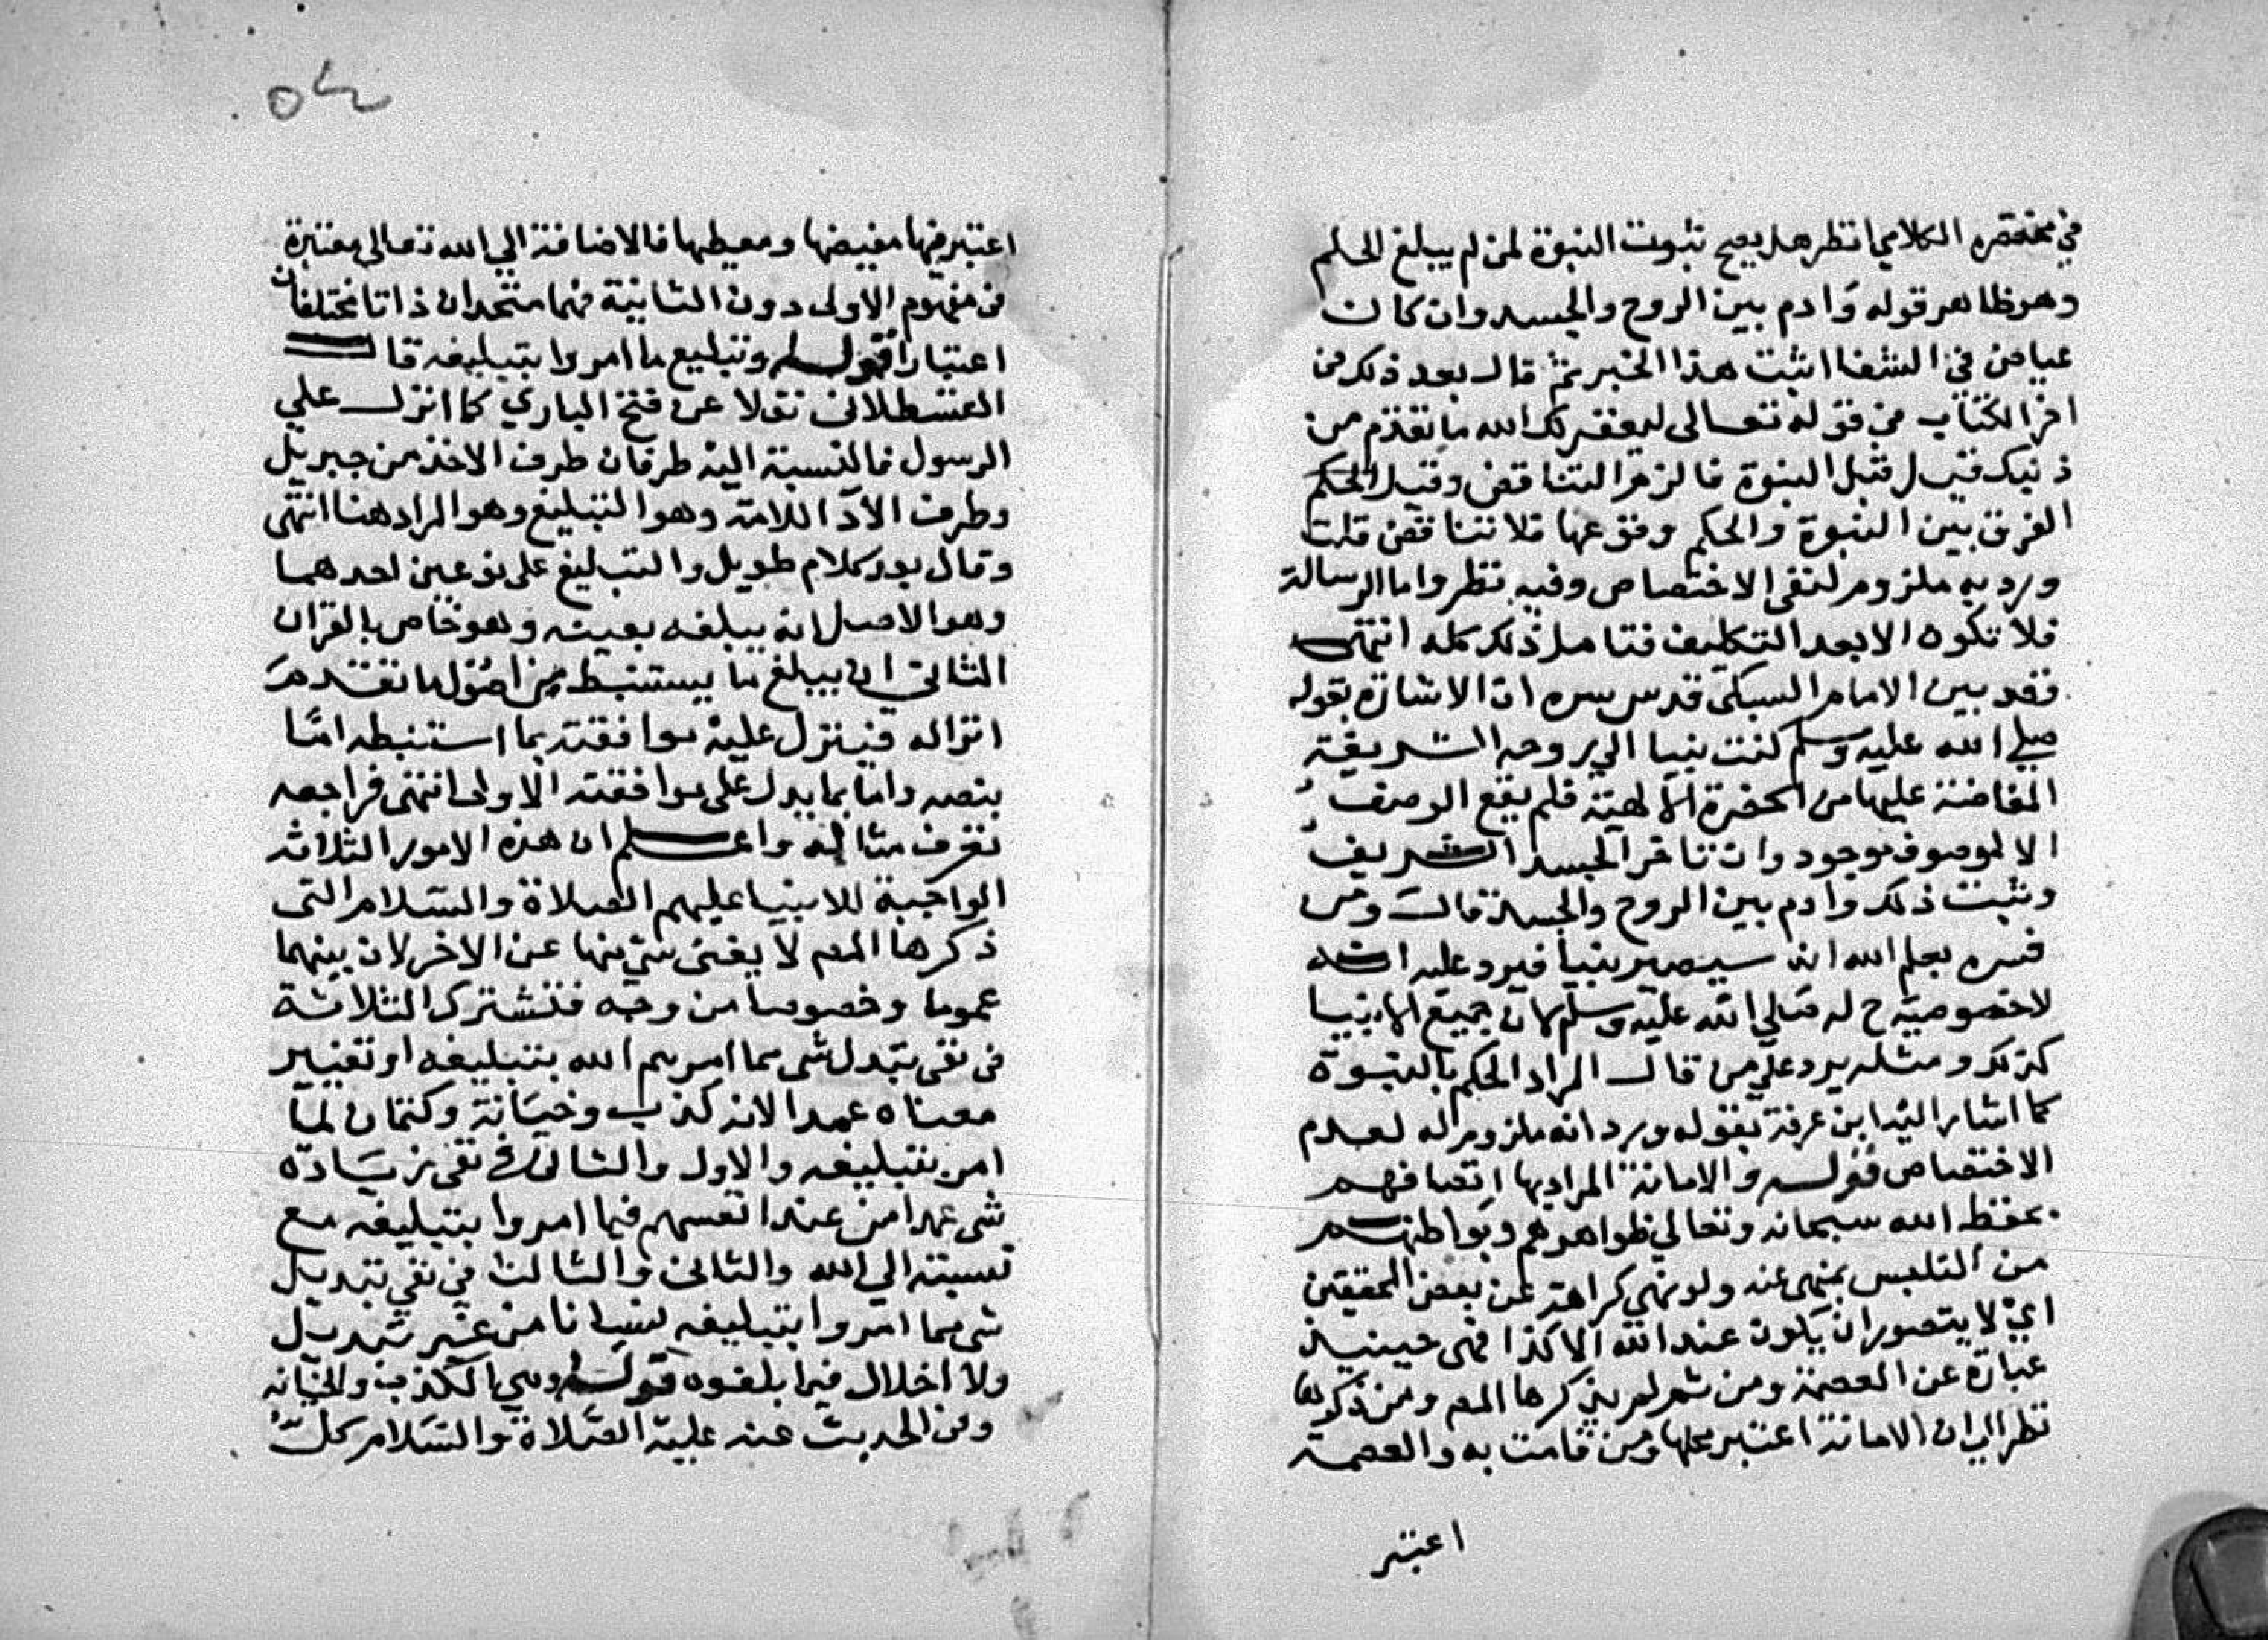 في مختصره الكلامي انظر هل يصح ثبوت النبوة لمن لم يبلغ الحلم
وهو ظاهر قوله وادم بين الروح والجسد وان كان
عياض في الشفا اثبت هذا الخبر ثم قال بعد ذلك في
اخر الكتاب في قوله تعالى ليغفر لك الله ما تقدم من
ذنبك قيل قبل النبوة فالزم التناقض وقيل الحكم
الفرق بين النبوة والحكم وقوعها فلا تناقض قلت
ورد به ملزوم لنفي الاختصاص وفيه نظر واما الرسالة
فلا تكون الا بعد التكليف فتامل ذلك كله انتهى
فقد بين الامام السبكي قدس سره ان الاشارة بقوله
صلي الله عليه وسلم كنت نبيا الي روحه الشريفة
المفاضة عليها من الحضرة الالهية فلم يقع الوصف
الا لموصوف موجود وان تاخر الجسد الشريف
وثبت ذلك وادم بين الروح والجسد قال ومن
فسره بعلم الله انه سيصير نبيا فيرد عليه انه
لا خصوصية ح له صلي الله عليه وسلم لان جميع الانبيا
كذلك ومثله يرد علي من قال المراد الحكم بالنبوة
كما اشار اليه ابن عرفة بقوله ورد انه ملزوم له لعدم
الاختصاص قوله والامانة المراد بها اتصافهم
بحفظ الله سبحانه وتعالي ظواهرهم وبواطنهم
من التلبس بمنهي عنه ولو نهي كراهة عن بعض المحققين
اي لا يتصور ان يكون عند الله الا كذا فهي حينيذ
عبارة عن العصمة ومن ثم لم يذكرها المص ومن ذكرها
نظر الي ان الامانة اعتبر محلها ومن قامت به والعصمة
اعتبر
اعتبر فيها مفيضها ومعطيها فالاضافة الي الله تعالى معتبرة
في مفهوم الاولى دون الثانية فهما متحدان ذاتا مختلفان
اعتبارا قوله وتبليغ ما امروا بتبليغه قال
القسطلاني نقلا عن فتح الباري كما انزل علي
الرسول فبالنسبة اليه طرفان طرف الاخذ من جبريل
وطرف الادا للامة وهو التبليغ وهو المراد هنا انتهى
وقال بعد كلام طويل والتبليغ على نوعين احدهما
وهو الاصل انه يبلغه بعينه وهو خاص بالقران
الثاني ان يبلغ ما يستنبط من اصول ما تقدم
انزاله فينزل عليه موافقته بما استنبطه اما
بنصه واما بما يدل على موافقته الاولى انتهى فراجعه
تعرف مثاله واعلم ان هذه الامور الثلاثة
الواجبة للانبيا عليهم الصلاة والسلام التي
ذكرها المص لا يغني شي منها عن الاخر لان بينهما
عموما وخصوصا من وجه فتشترك الثلاثة
في نفي تبدل شي مما امرهم الله بتبليغه او تغيير
معناه عمدا لانه كذب وخيانة وكتمان لما
امر بتبليغه والاول والثاني في نفي زيادة
شي عمدا من عند انفسهم فيما امروا بتبليغه مع
نسبته الي الله والثاني والثالث في نفي تبديل
شي مما امروا بتبليغه نسيانا من غير تبديل
ولا اخلال فيما بلغوه قوله وهي الكذب والخيانه
وفي الحديث عنه عليه الصلاة والسلام كل